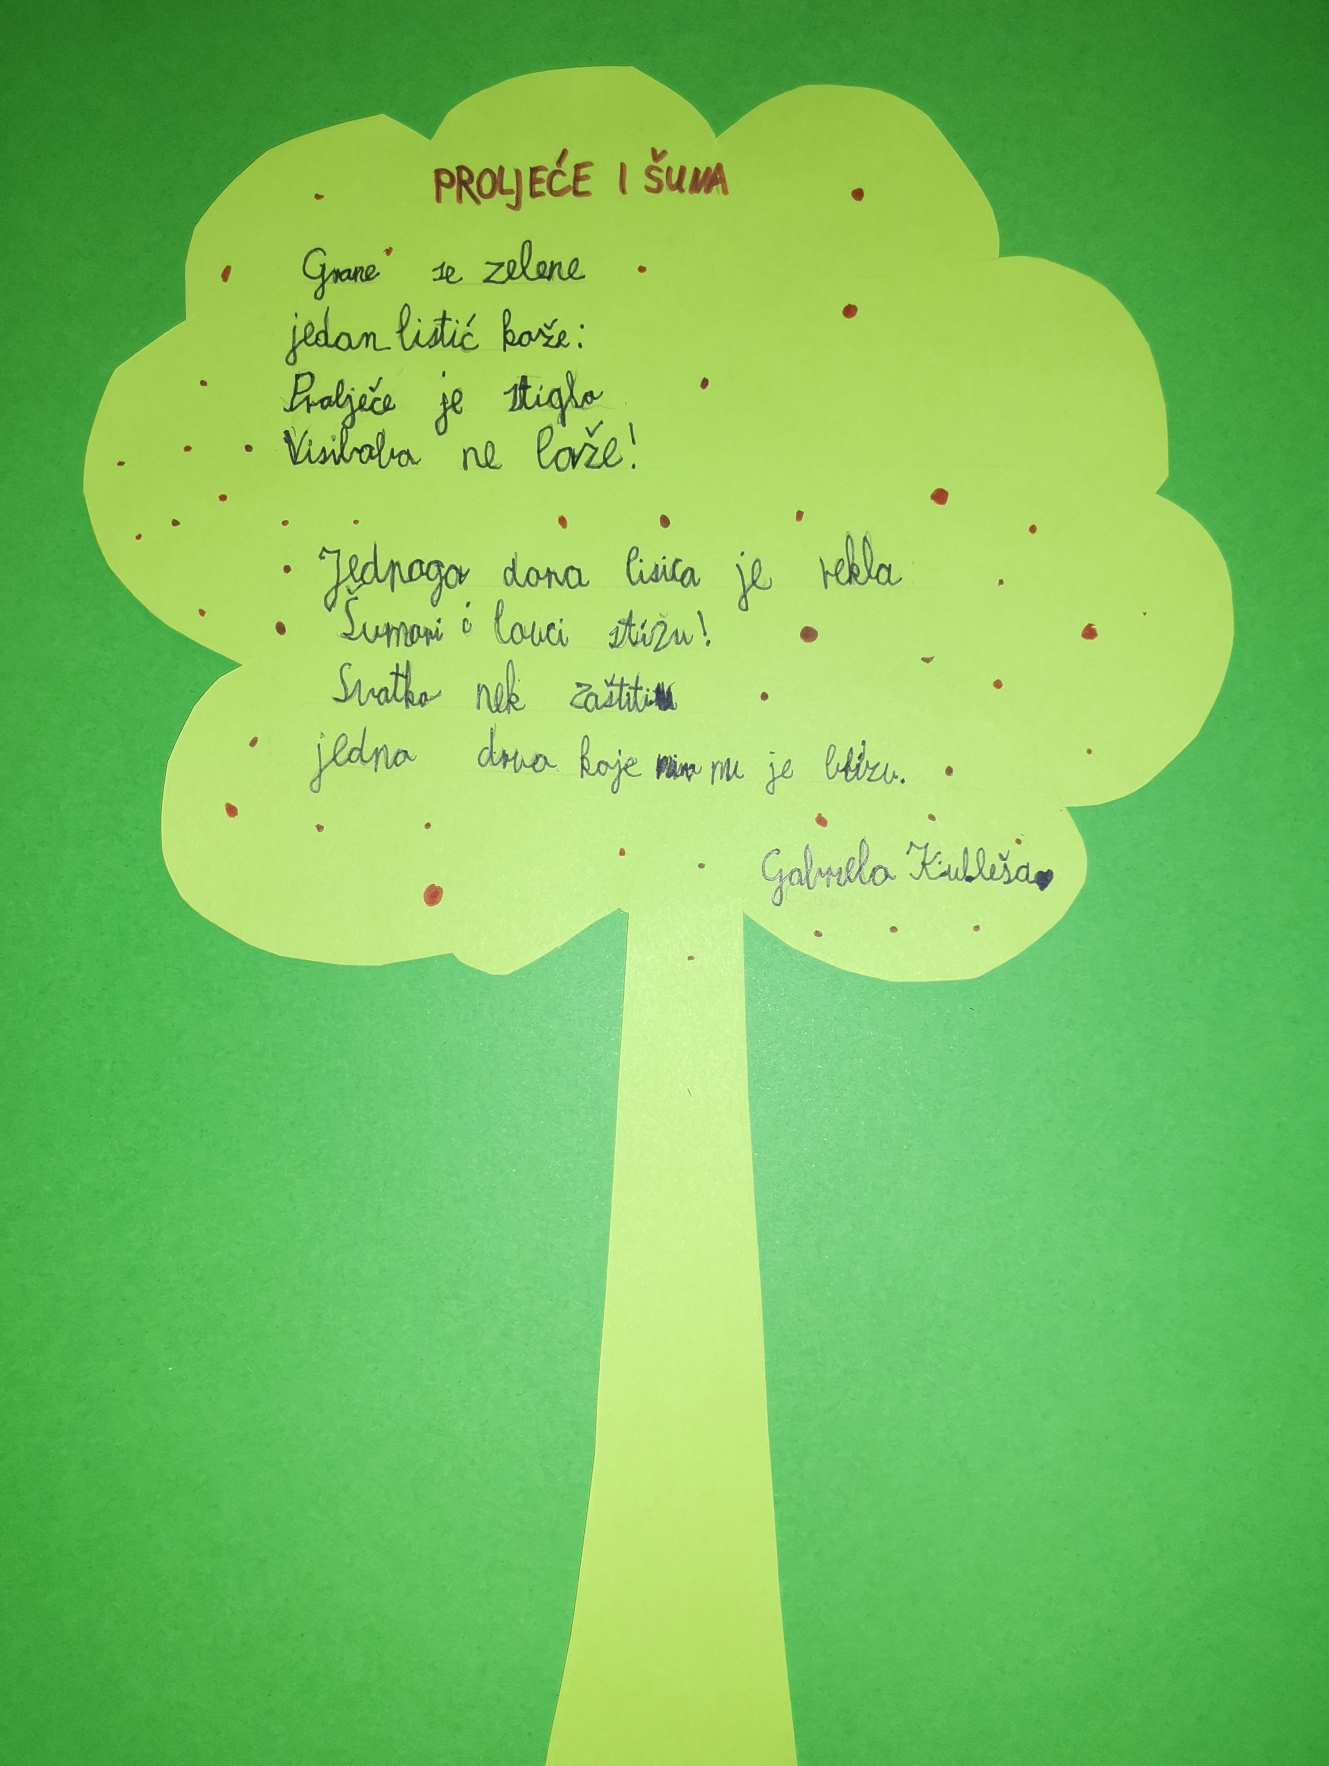 PROLJEĆE I ŠUMA
Grane se zelene
jedan listić kaže:
Proljeće je stiglo
Visibaba ne laže!
Jednoga dana lisica je rekla
Šumari i lovci stižu!
Svatko nek zaštiti
jedno drvo koje mu je blizu.
Gabriela Kubleša